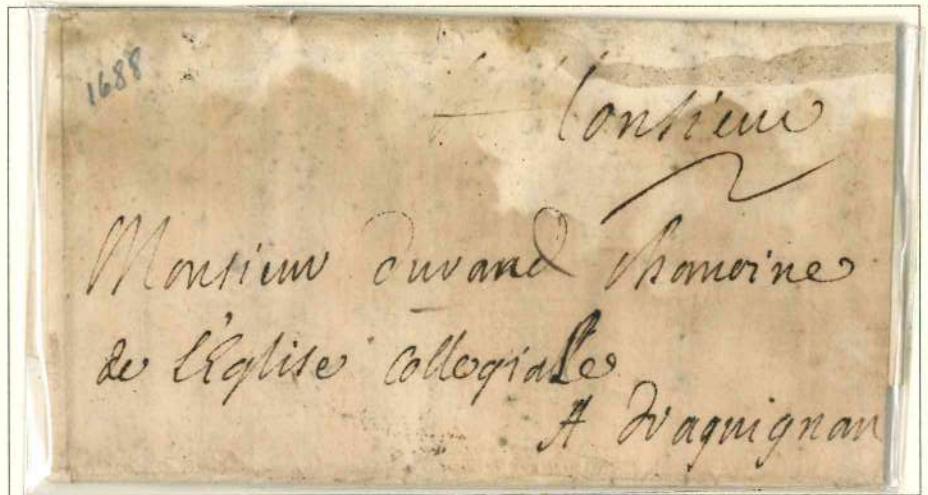 1688
Monsieur
Monsieur durand Chanoine
de l'Eglise Collegialle
A Draguignan